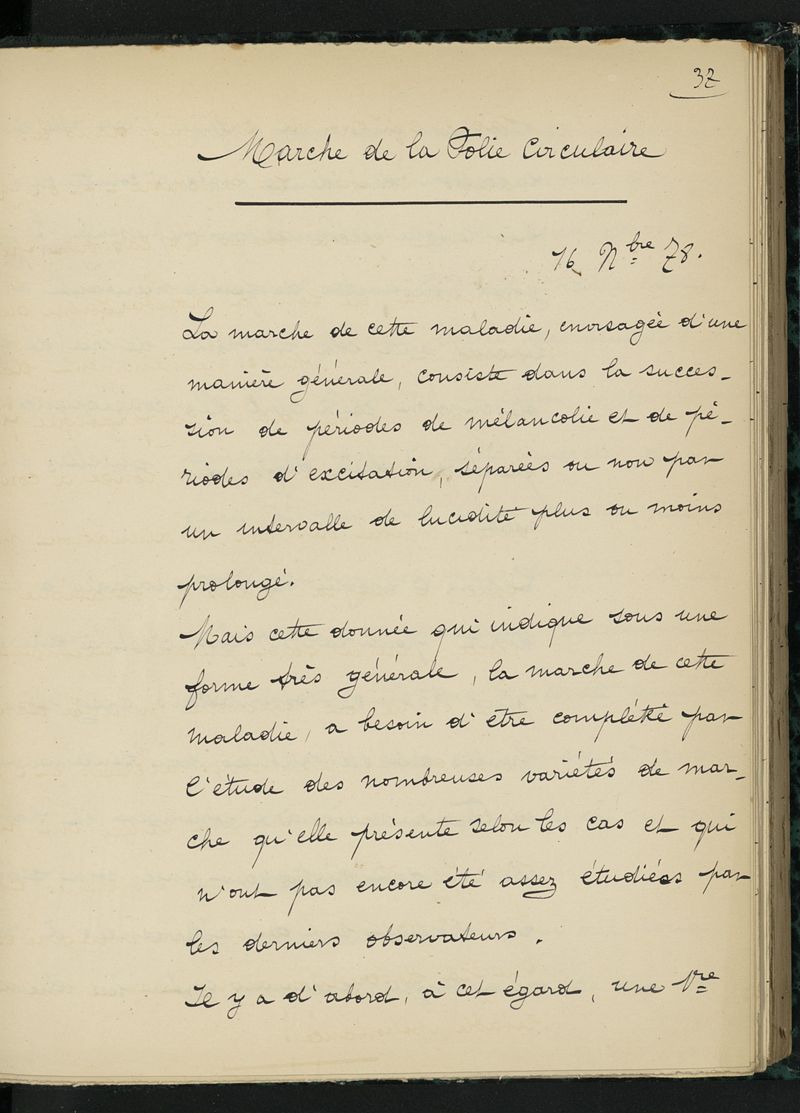 37
Marche de la Folie Circulaire
16 Nbre 78.
La marche de cette maladie, envisagée d'une
manière générale, consiste dans la succes-
sion de périodes de mélancolie et de pé-
riodes d'excitation, séparées ou non par
un intervalle de lucidité plus ou moins
prolongé.
Mais cette donnée qui indique sous une
forme très générale, la marche de cette
maladie, a besoin d'être complété par
l'étude des nombreuses variétés de mar-
che qu'elle présente selon les cas et qui
n'ont pas encore été assez étudiées par
les derniers observateurs.
Il y a d'abord, à cet égard, une 1re